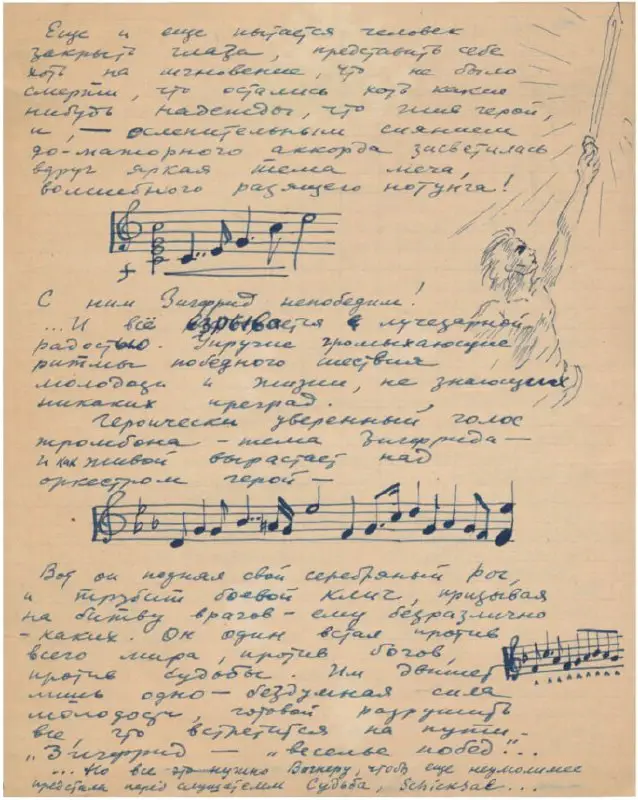 Еще и еще пытается человек
закрыть глаза, представить себе
хоть на мгновение, что не было
смерти, что остались хоть какие
нибудь надежды, что жив герой,
и, — ослепительным сиянием
до-мажорного аккорда засветилась
вдруг яркая тема меча,
волшебного разящего нотунга!
f
С ним Зигфрид непобедим!
...И всё взрывается с лучезарной
радостью. Упругие громыхающие
ритмы победного шествия
молодости и жизни, не знающих
никаких преград.
Героически уверенный голос
тромбона — тема Зигфрида —
и как живой вырастает над
оркестром герой —
Вот он поднял свой серебряный рог,
и трубит боевой клич, призывая
на битву врагов — ему безразлично
— каких. Он один встал против
всего мира, против богов,
против судьбы. Им движет
лишь одно — бездумная сила
молодости, готовой разрушить
все, что встретится на пути.
"Зигфрид — „веселье побед"...
...Но все это нужно Вагнеру, чтоб еще неумолимее
предстала перед слушателем Судьба, Schicksal...